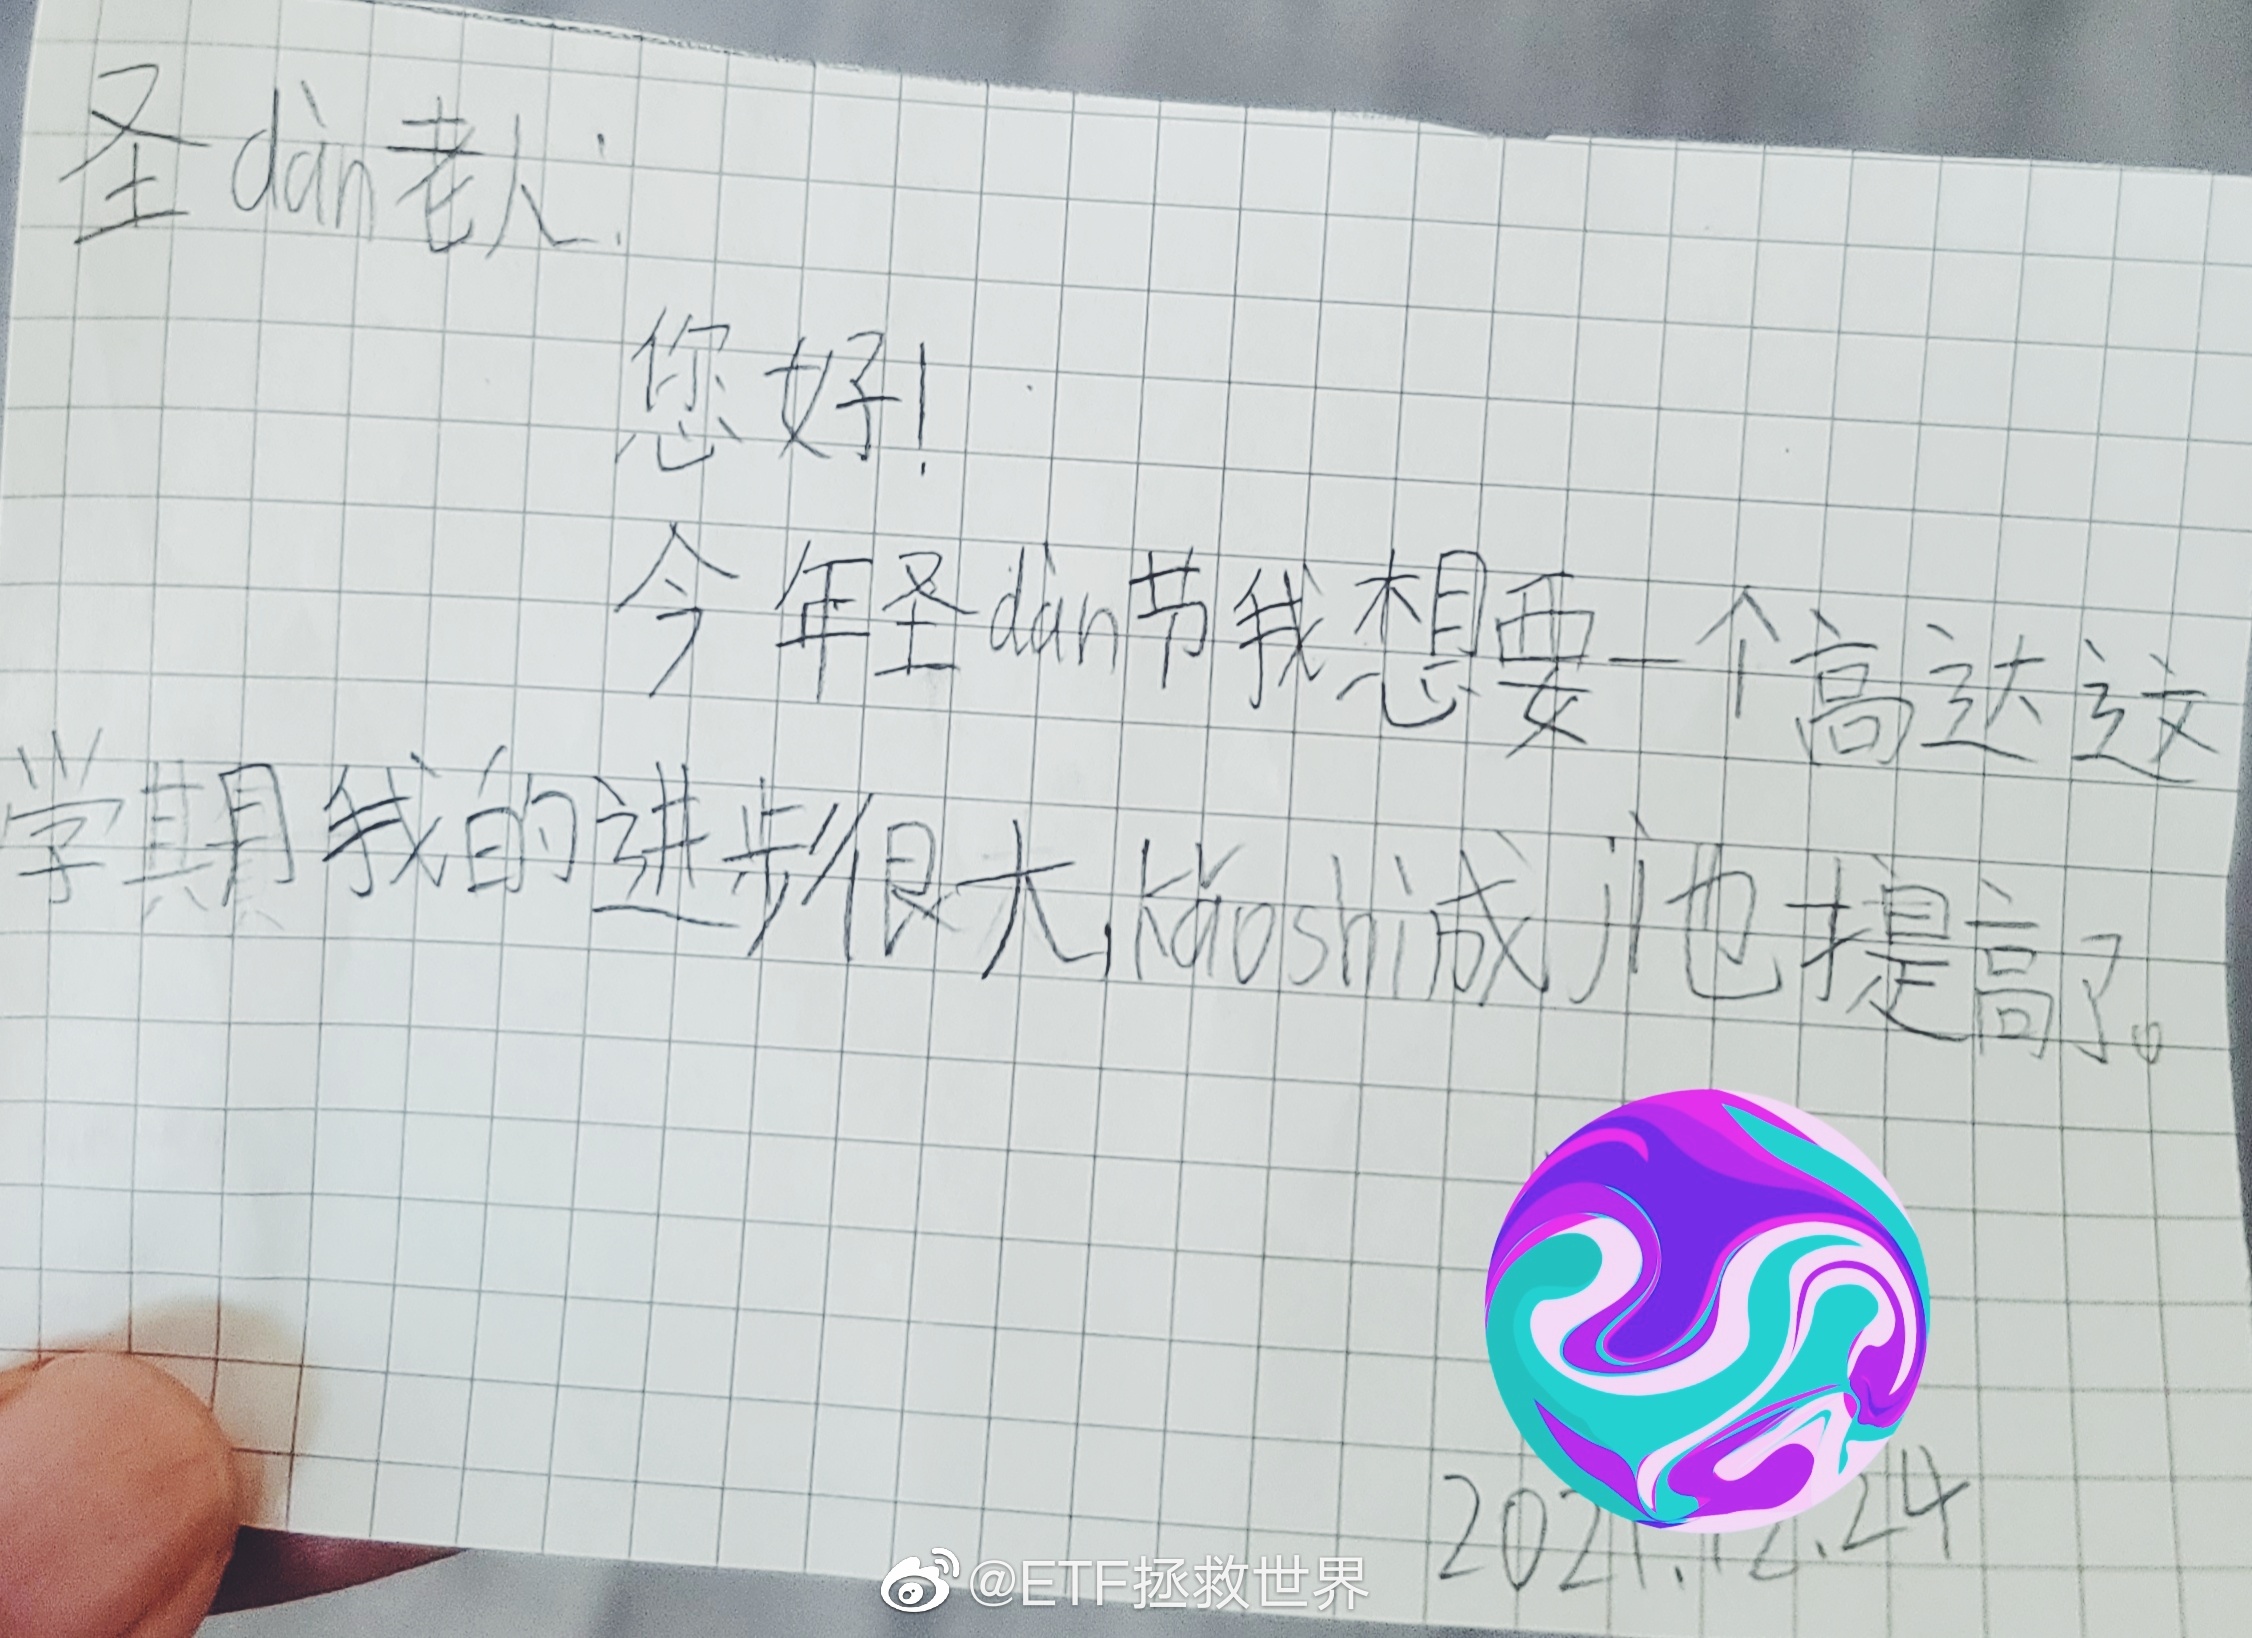 圣dàn老人:
您好!
今年圣dàn节我想要一个高达这
学期我的进步很大,kǎoshì成
也提高了。
2021.12.24
@ETF拯救世界